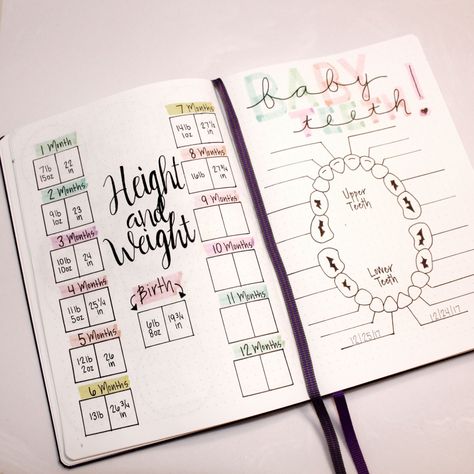 1 Month
7lb 22
15oz in
2 Months
9lb 23
1oz in
3 Months
10lb 24
10oz in
4 Months
11lb 25 1/4
5oz in
5 Months
12lb 26
2oz in
6 Months
13lb 26 3/4
in
Height
and
Weight
Birth
6lb 19 3/4
8oz in
7 Months
14lb 27 1/2
1oz in
8 Months
16lb 27 3/4
in
9 Months
10 Months
11 Months
12 Months
BABY
TEETH
baby
teeth!
Upper
Teeth
Lower
Teeth
12/25/17
12/24/17